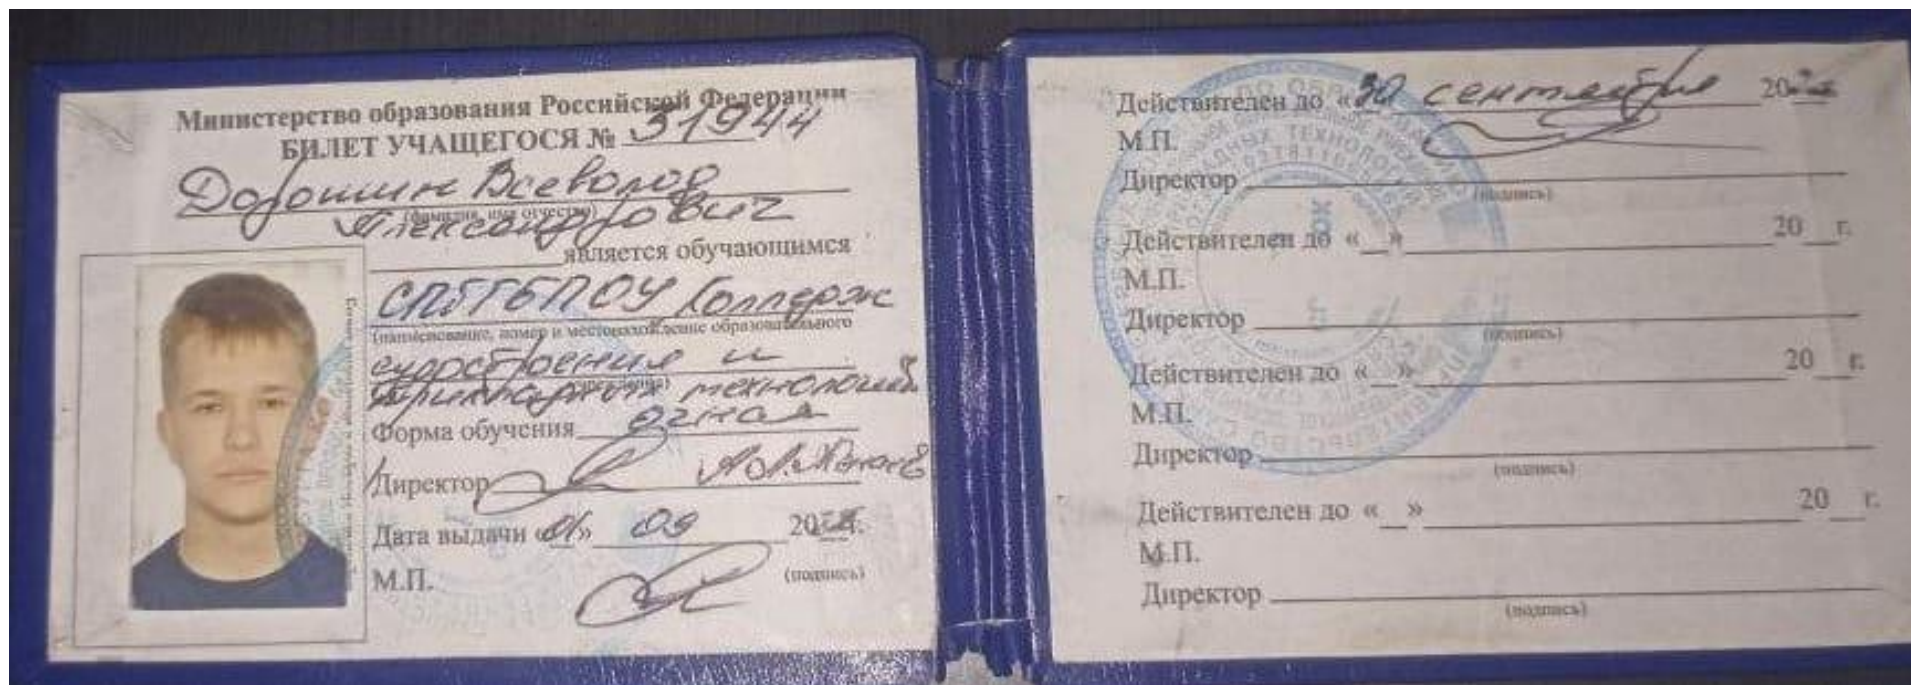 Министерство образования Российской Федерации
БИЛЕТ УЧАЩЕГОСЯ № 31944
Дорошин Всеволод
(фамилия, имя отчество)
Александрович
является обучающимся
СПбГБПОУ Колледж
(наименование, номер и местонахождение образовательного
судостроения и
учреждения)
прикладных технологий
Форма обучения очная
Директор
Дата выдачи «01» 09 20 г.
М.П.
(подпись)
Действителен до «30 сентября 20
М.П.
Директор
(подпись)
Действителен до «__» 20__г.
М.П.
Директор
(подпись)
Действителен до «__» 20__г.
М.П.
Директор
(подпись)
Действителен до «__» 20__г.
М.П.
Директор
(подпись)